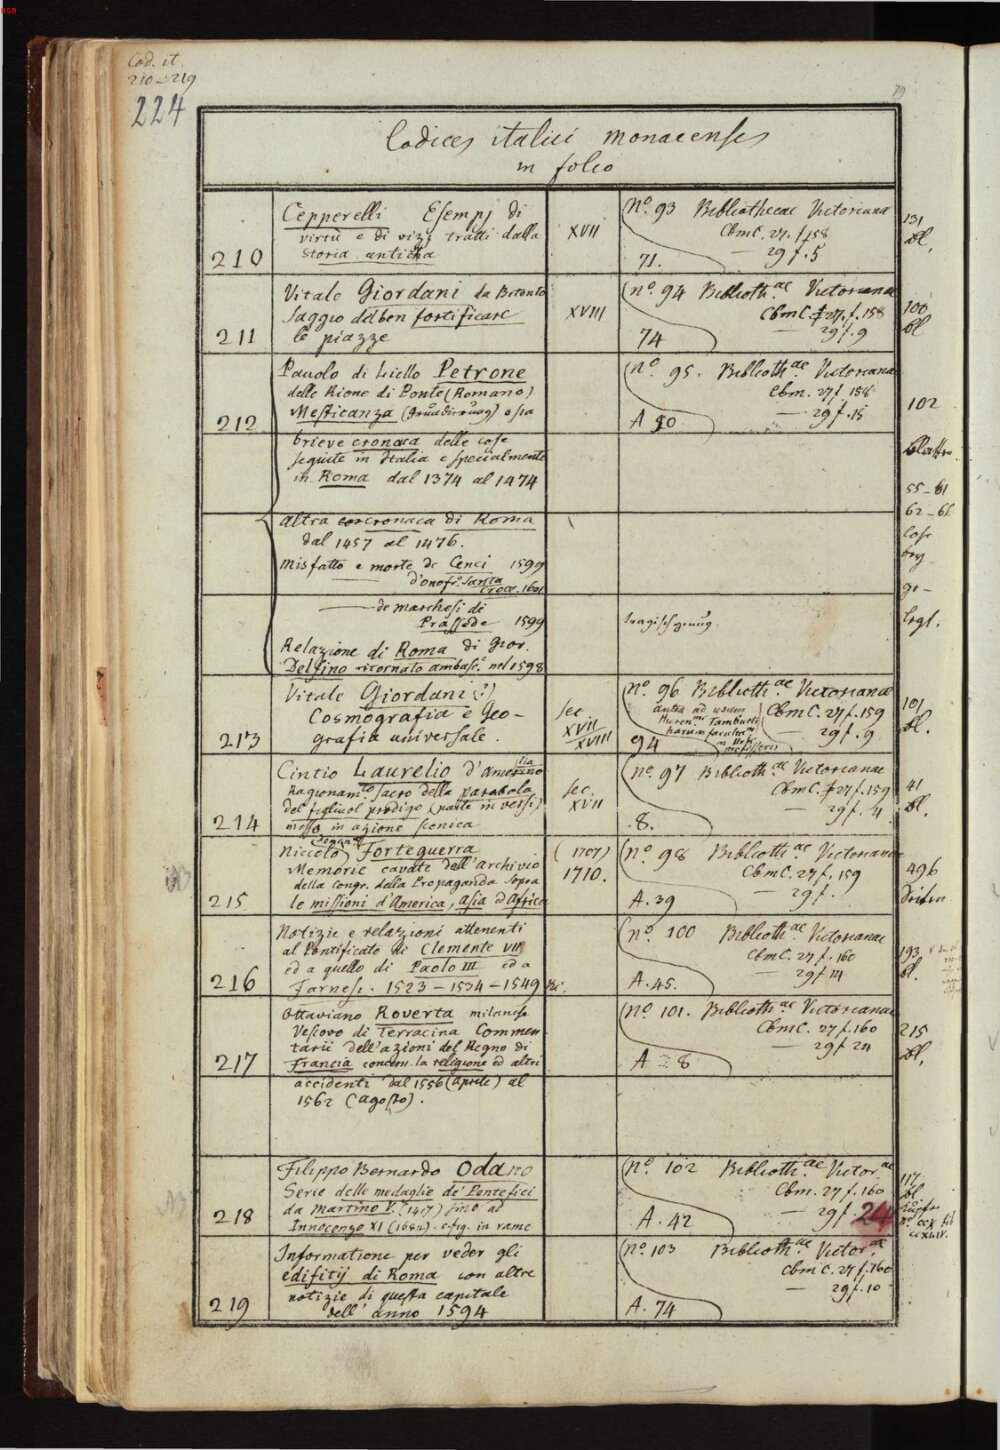 BSB
Cod. it.
210-219
224
79
Codices italici monacenses
in folio
210
Cepperelli Esempj di
virtù e di vizj tratti dalla
storia anticha
XVII
No. 93 Bibliothecae Victoriana
CbmC. 27. f. 158
— 29 f. 5
71.
131
bl.
211
Vitale Giordani da Bitonto
Saggio del ben fortificare
le piazze
XVIII
no. 94 Biblioth.ae Victorianae
CbmC. 27. f. 158
— 29 f. 9
74
100
bl
212
Pauolo di Liello Petrone
dello Rione di Ponte (Romano)
Mesticanza o sia
brieve cronaca delle cose
seguite in Italia e specialmente
in Roma dal 1374 al 1474
No 95. Biblioth.ae Victoriana
Cbm. 27 f 158
— 29 f. 15
A 30
102
Blatter
altra cronaca di Roma
dal 1457 al 1476.
misfatto e morte de Cenci 1599
— d'onofr. Santa
Croce. 1601
— de marchesi di
Prassede 1599
Relazione di Roma di Gior.
Delfino ritornato ambasc.e nel 1598
55-61
62-66
213
Vitale Giordani (?)
Cosmografia e Geo-
grafia universale.
sec.
XVII
XVIII
No. 96 Biblioth.ae Victorianae
antea ad usum
Hieron.mi Tambucci
harum facultatum
professoris
CbmC. 27 f. 159
— 29 f. 9
e94
101
bl.
214
Cintio Laurelio d'Amelia
Ragionam.to sacro della parabola
del figliuol prodigo (parte in versi)
messo in azione scenica
sec.
XVII
no. 97 Biblioth.ae Victorianae
CbmC. 27 f. 159
— 29 f. 4
.8.
41
bl.
215
Niccolò Forteguerra
Memorie cavate dell'archivio
della Congr. della Propaganda sopra
le missioni d'America, Asia d'Africa
(1707)
1710.
No. 98 Biblioth.ae Victorianae
CbmC. 27 f. 159
— 29 f.
A. 39
496
Seiten
216
Notizie e relazioni attenenti
al Pontificato di Clemente VII
ed a quello di Paolo III ed a
Farnesi. 1523 – 1534 – 1549
no. 100 Biblioth.ae Victorianae
CbmC. 27 f. 160
— 29 f 14
A. 45.
193
bl.
217
Ottaviano Roverta milanese
Vescovo di Terracina Commen-
tarii dell'azioni del Regno di
Francia concern. la religione ed altri
accidenti dal 1556 (aprile) al
1562 (agosto).
No. 101. Biblioth.ae Victorianae
CbmC. 27 f. 160
— 29 f 24
A 8
215
bl.
218
Filippo Bernardo Odano
Serie delle medaglie de' Pontefici
da Martino V. (1417) fino ad
Innocenzo XI (1682). e fig. in rame
No. 102 Biblioth.ae Victor.ae
Cbm. 27 f. 160
— 29 f. 24
A. 42
117
bl
219
Informatione per veder gli
edifitij di Roma con altre
notizie di questa capitale
dell'anno 1594
No. 103 Biblioth.ae Victor.ae
CbmC. 27 f. 160
— 29 f. 10
A. 74